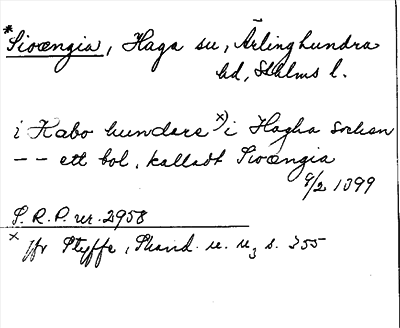 * Siwængia, Haga sn, Ärlinghundra
hd, Sthlms l.
i Habo hundare x) i Hagha Sochen
-- ett bol, kalladt Siwængia
9/2 1399
S.R.P. nr. 2958
x jfr Styffe, Skand. u. u, s. 355